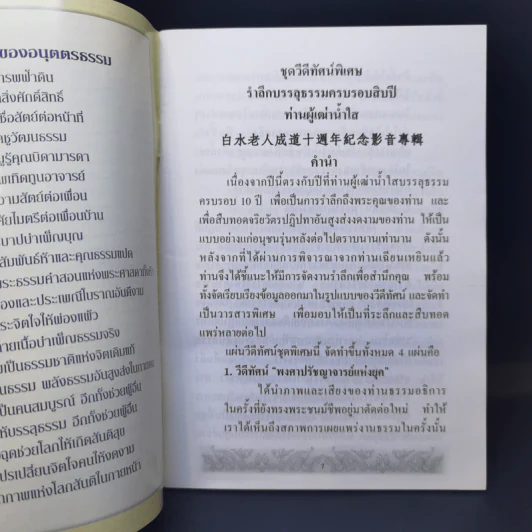 ของอนุตตรธรรม
ารพฟ้าดิน
สิ่งศักดิ์สิทธิ์
ซื่อสัตย์ต่อหน้าที่
ชูวัฒนธรรม
ญูรู้คุณบิดามารดา
พเทิดทูนอาจารย์
วามสัตย์ต่อเพื่อน
ัยไมตรีต่อเพื่อนบ้าน
บาปบำเพ็ญบุญ
สัมพันธ์ห้าและคุณธรรมแปด
พระธรรมคำสอนแห่งพระศาสดา
องและประเพณีโบราณอันดีงาม
ระจิตใจให้ผ่องแผ้ว
ายเนื้อบำเพ็ญธรรมจริง
บเป็นธรรมชาติแห่งจิตเดิมแท้
ธรรม พลังธรรมอันสูงส่งในกายตน
ป็นคนสมบูรณ์ อีกทั้งช่วยผู้อื่น
ห้บรรลุธรรม อีกทั้งช่วยผู้อื่น
ฉุดช่วยโลกให้เกิดสันติสุข
ปรเปลี่ยนจิตใจคนให้งดงาม
าภาพแห่งโลกสันติในภายหน้า
ชุดวีดีทัศน์พิเศษ
รำลึกบรรลุธรรมครบรอบสิบปี
ท่านผู้เฒ่าน้ำใส
白水老人成道十週年紀念影音專輯
คำนำ
เนื่องจากปีนี้ตรงกับปีที่ท่านผู้เฒ่าน้ำใสบรรลุธรรม
ครบรอบ 10 ปี เพื่อเป็นการรำลึกถึงพระคุณของท่าน และ
เพื่อสืบทอดจริยวัตรปฏิปทาอันสูงส่งดงามของท่าน ให้เป็น
แบบอย่างแก่อนุชนรุ่นหลังต่อไปตราบนานเท่านาน ดังนั้น
หลังจากที่ได้ผ่านการพิจารณาจากท่านเฉียนเหยินแล้ว
ท่านจึงได้ชี้แนะให้มีการจัดงานรำลึกเพื่อสำนึกคุณ พร้อม
ทั้งจัดเรียบเรียงข้อมูลออกมาในรูปแบบของวีดีทัศน์ และจัดทำ
เป็นวารสารพิเศษ เพื่อมอบให้เป็นที่ระลึกและสืบทอด
แพร่หลายต่อไป
แผ่นวีดีทัศน์ชุดพิเศษนี้ จัดทำขึ้นทั้งหมด 4 แผ่นคือ
1. วีดีทัศน์ "พงศาปรัชญาจารย์แห่งยุค"
ได้นำภาพและเสียงของท่านธรรมอธิการ
ในครั้งที่ยังทรงพระชนม์ชีพอยู่มาตัดต่อใหม่ ทำให้
เราได้เห็นถึงสภาพการเผยแพร่งานธรรมในครั้งนั้น